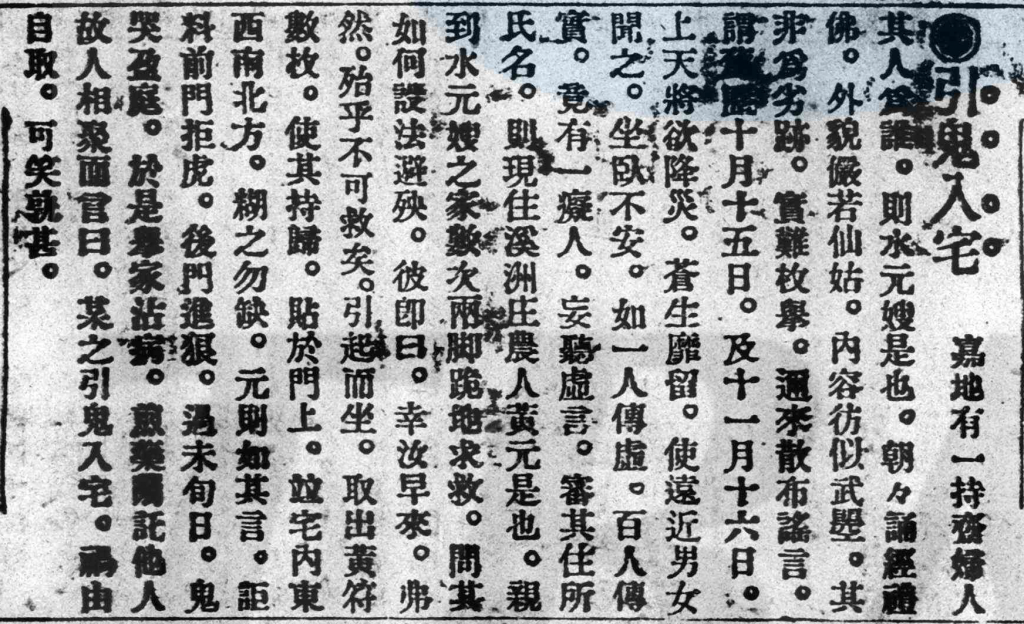 ●引鬼入宅　嘉地有一持齋婦人
其人爲誰。則水元嫂是也。朝々誦經禮
佛。外貌儼若仙姑。內容彷似武曌。其
非爲劣跡。實難枚擧。邇來散布謠言。
謂舊曆十月十五日。及十一月十六日。
上天將欲降災。蒼生靡留。使遠近男女
聞之。坐臥不安。如一人傳虛。百人傳
實。竟有一癡人。妄聽虛言。審其住所
氏名。則現住溪洲庄農人黃元是也。親
到水元嫂之家數次兩脚跪地求救。問其
如何設法避殃。彼卽曰。幸汝早來。弗
然。殆乎不可救矣。引起而坐。取出黃符
數枚。使其持歸。貼於門上。竝宅內東
西南北方。糊之勿缺。元則如其言。詎
料前門拒虎。後門進狼。過未旬日。鬼
哭盈庭。於是擧家沾病。煎藥囑託他人
故人相聚而言曰。某之引鬼入宅。禍由
自取。可笑孰甚。